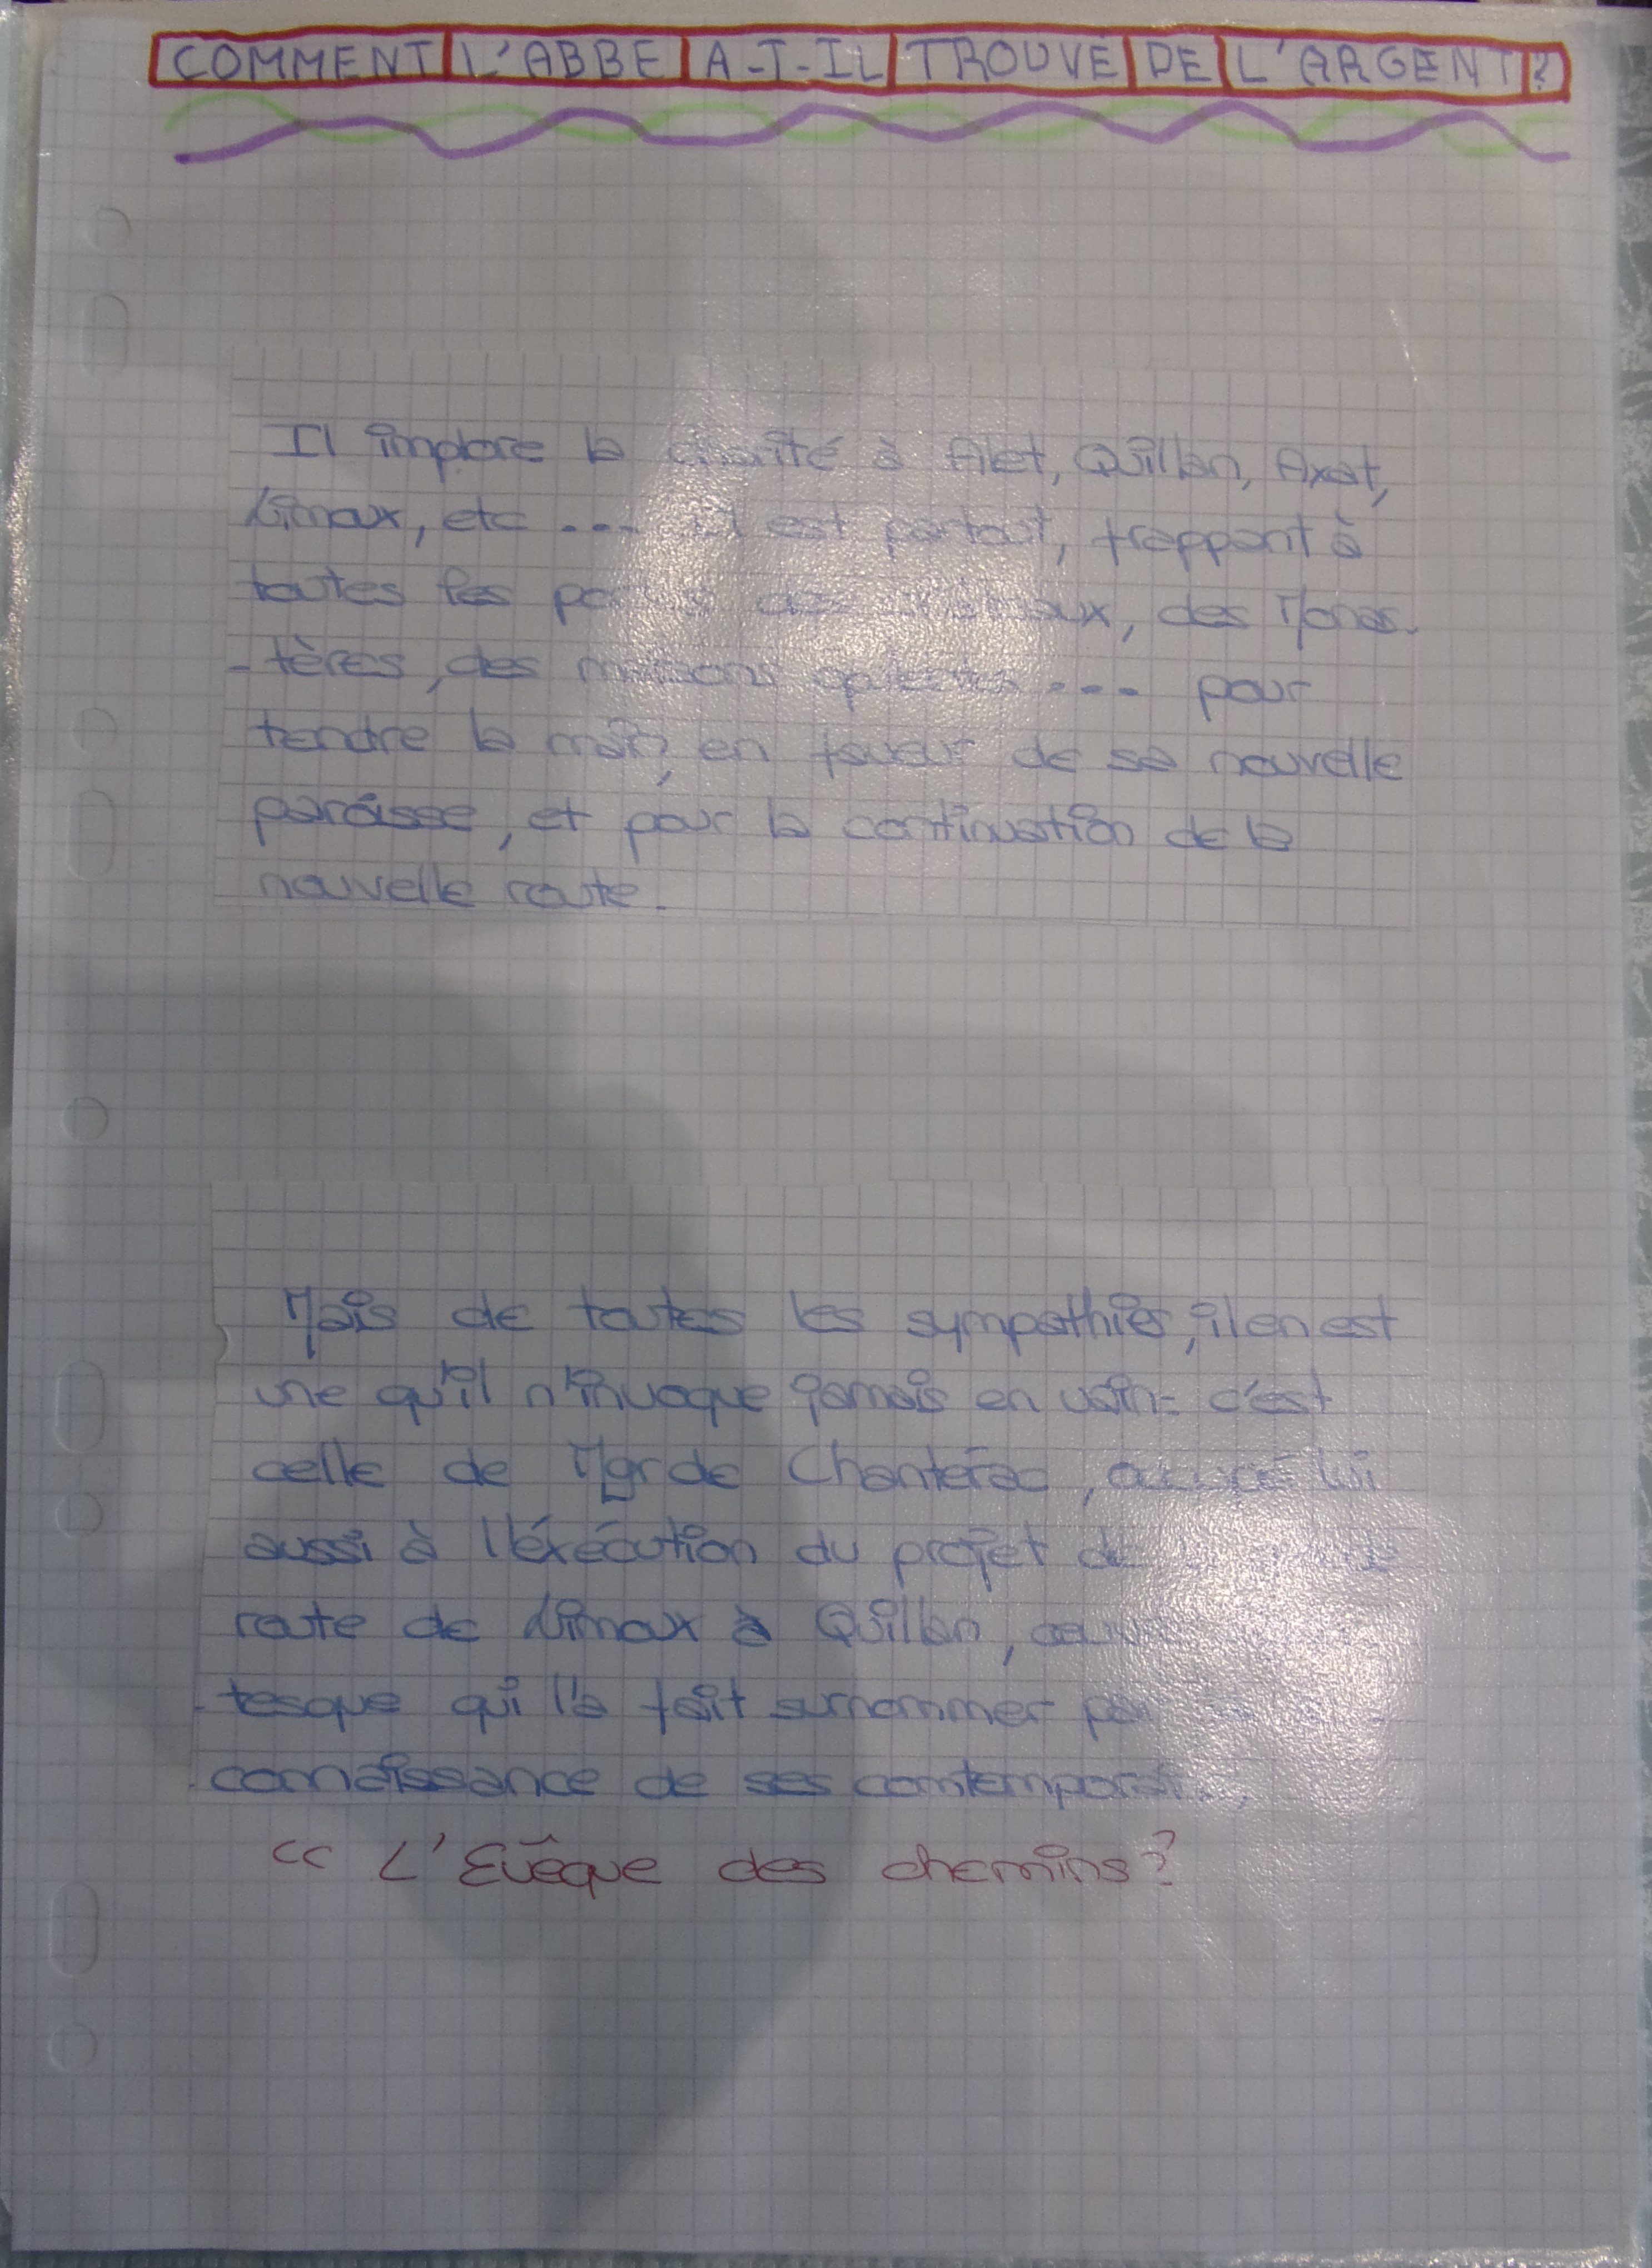 COMMENT L'ABBE A-T-IL TROUVE DE L'ARGENT?
Il implore la charité à Alet, Quillan, Axat,
Limoux, etc ... il est partout, frappant à
toutes les portes des, des Monas-
-tères, des maisons ... pour
tendre la main, en faveur de sa nouvelle
paroisse, et pour la continuation de la
nouvelle route.
Mais de toutes les sympathies, il en est
une qu'il n'invoque jamais en vain: c'est
celle de Mgr de Chanterac, occupé lui
aussi à l'éxécution du projet de
route de Limoux à Quillan,
-tesque qui l'a fait surnommer
connaissance de ses
<< L'Evêque des chemins?